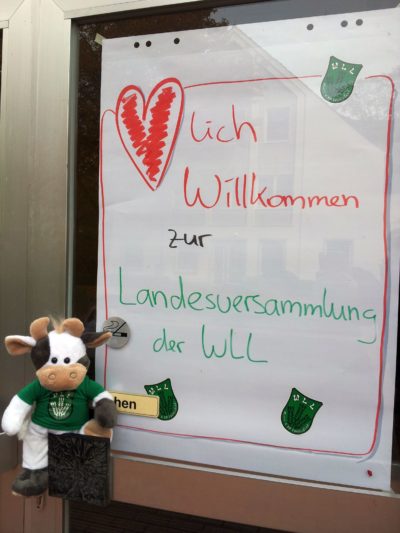 lich
Willkommen
zur
Landesversammlung
der WLL
hen
WLL
WLL
WLL